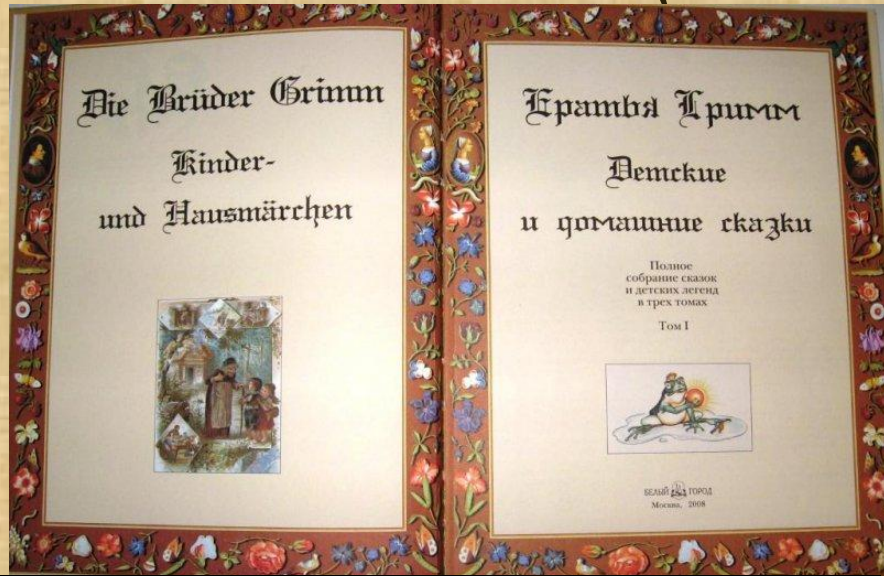 Die Brüder Grimm
Kinder-
und Hausmärchen
Братья Гримм
Детские
и домашние сказки
Полное
собрание сказок
и детских легенд
в трех томах
Том I
БЕЛЫЙ ГОРОД
Москва, 2008